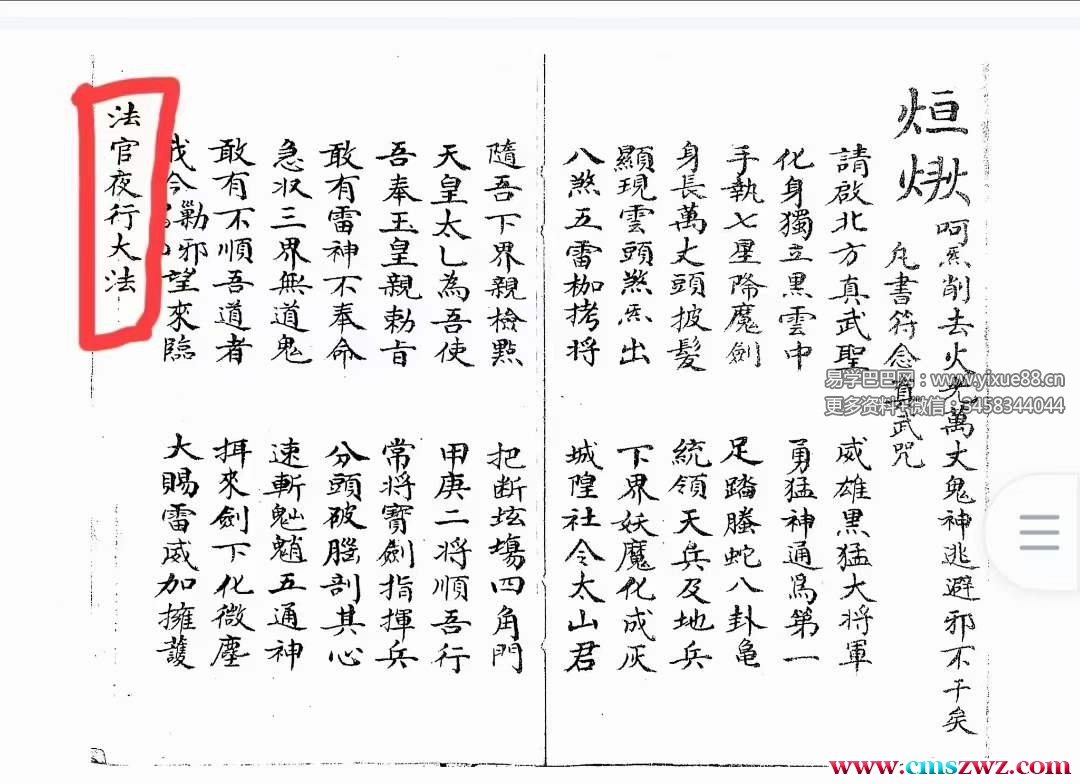 烜
呵炁削去火光萬丈鬼神逃避邪不干矣
凡書符念真武咒
請啟北方真武聖 威雄黑猛大將軍
化身獨立黑雲中 勇猛神通為第一
手執七星降魔劍 足踏螣蛇八卦龜
身長萬丈頭披髮 統領天兵及地兵
顯現雲頭煞炁出 下界妖魔化成灰
八煞五雷枷拷將 城隍社令太山君
隨吾下界親檢點 把断坛塲四角門
天皇太乚為吾使 甲庚二将順吾行
吾奉玉皇親勅旨 常將寶劍指揮兵
敢有雷神不奉命 分頭破腦剖其心
急収三界無道鬼 速斬魈五通神
敢有不順吾道者 拝來劍下化微塵
我今勦邪望來臨 大賜雷威加擁護
法官夜行大法
易学巴巴网：www.yixue88.cn
更多资料+微信：3458344044
www.cmszwz.com